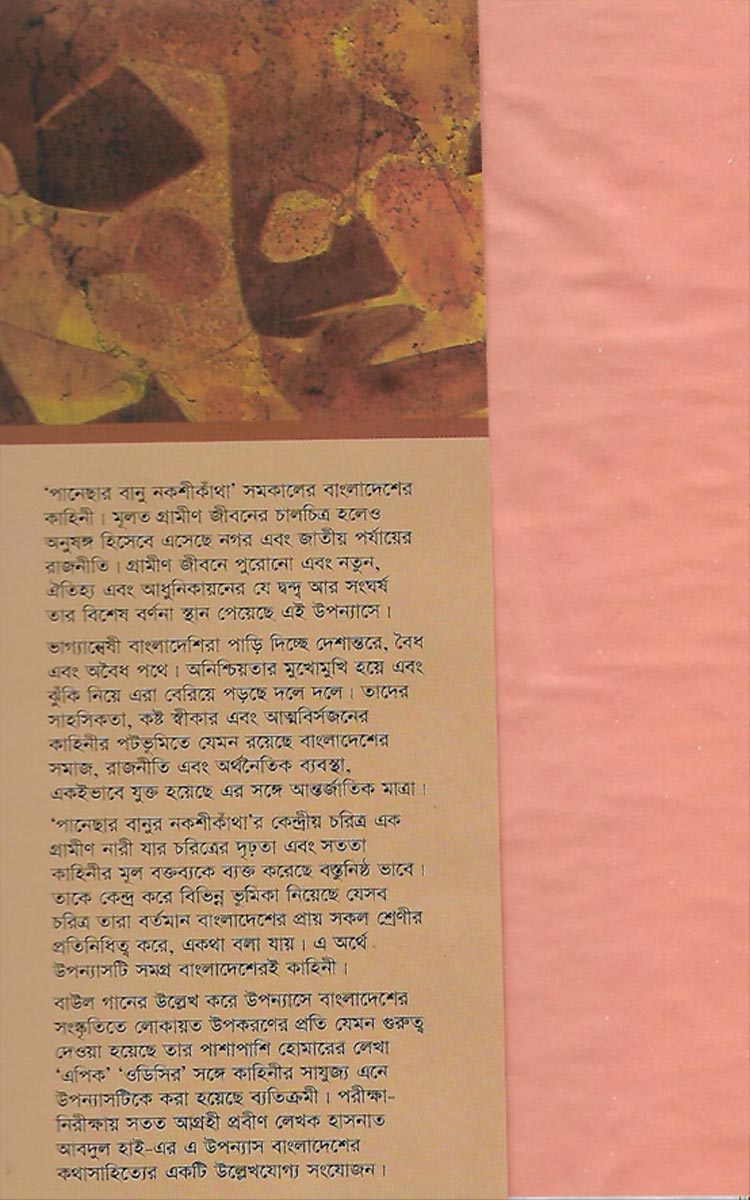 'পানেছার বানু নকশীকাঁথা' সমকালের বাংলাদেশের
কাহিনী। মূলত গ্রামীণ জীবনের চালচিত্র হলেও
অনুষঙ্গ হিসেবে এসেছে নগর এবং জাতীয় পর্যায়ের
রাজনীতি। গ্রামীণ জীবনে পুরোনো এবং নতুন,
ঐতিহ্য এবং আধুনিকায়নের যে দ্বন্দ্ব আর সংঘর্ষ
তার বিশেষ বর্ণনা স্থান পেয়েছে এই উপন্যাসে।
ভাগ্যান্বেষী বাংলাদেশিরা পাড়ি দিচ্ছে দেশান্তরে, বৈধ
এবং অবৈধ পথে। অনিশ্চিয়তার মুখোমুখি হয়ে এবং
ঝুঁকি নিয়ে এরা বেরিয়ে পড়ছে দলে দলে। তাদের
সাহসিকতা, কষ্ট স্বীকার এবং আত্মবির্সজনের
কাহিনীর পটভূমিতে যেমন রয়েছে বাংলাদেশের
সমাজ, রাজনীতি এবং অর্থনৈতিক ব্যবস্থা,
একইভাবে যুক্ত হয়েছে এর সঙ্গে আন্তর্জাতিক মাত্রা।
'পানেছার বানুর নকশীকাঁথা'র কেন্দ্রীয় চরিত্র এক
গ্রামীণ নারী যার চরিত্রের দৃঢ়তা এবং সততা
কাহিনীর মূল বক্তব্যকে ব্যক্ত করেছে বস্তুনিষ্ঠ ভাবে।
তাকে কেন্দ্র করে বিভিন্ন ভূমিকা নিয়েছে যেসব
চরিত্র তারা বর্তমান বাংলাদেশের প্রায় সকল শ্রেণীর
প্রতিনিধিত্ব করে, একথা বলা যায়। এ অর্থে
উপন্যাসটি সমগ্র বাংলাদেশেরই কাহিনী।
বাউল গানের উল্লেখ করে উপন্যাসে বাংলাদেশের
সংস্কৃতিতে লোকায়ত উপকরণের প্রতি যেমন গুরুত্ব
দেওয়া হয়েছে তার পাশাপাশি হোমারের লেখা
'এপিক' 'ওডিসির' সঙ্গে কাহিনীর সাযুজ্য এনে
উপন্যাসটিকে করা হয়েছে ব্যতিক্রমী। পরীক্ষা-
নিরীক্ষায় সতত আগ্রহী প্রবীণ লেখক হাসনাত
আবদুল হাই-এর এ উপন্যাস বাংলাদেশের
কথাসাহিত্যের একটি উল্লেখযোগ্য সংযোজন।